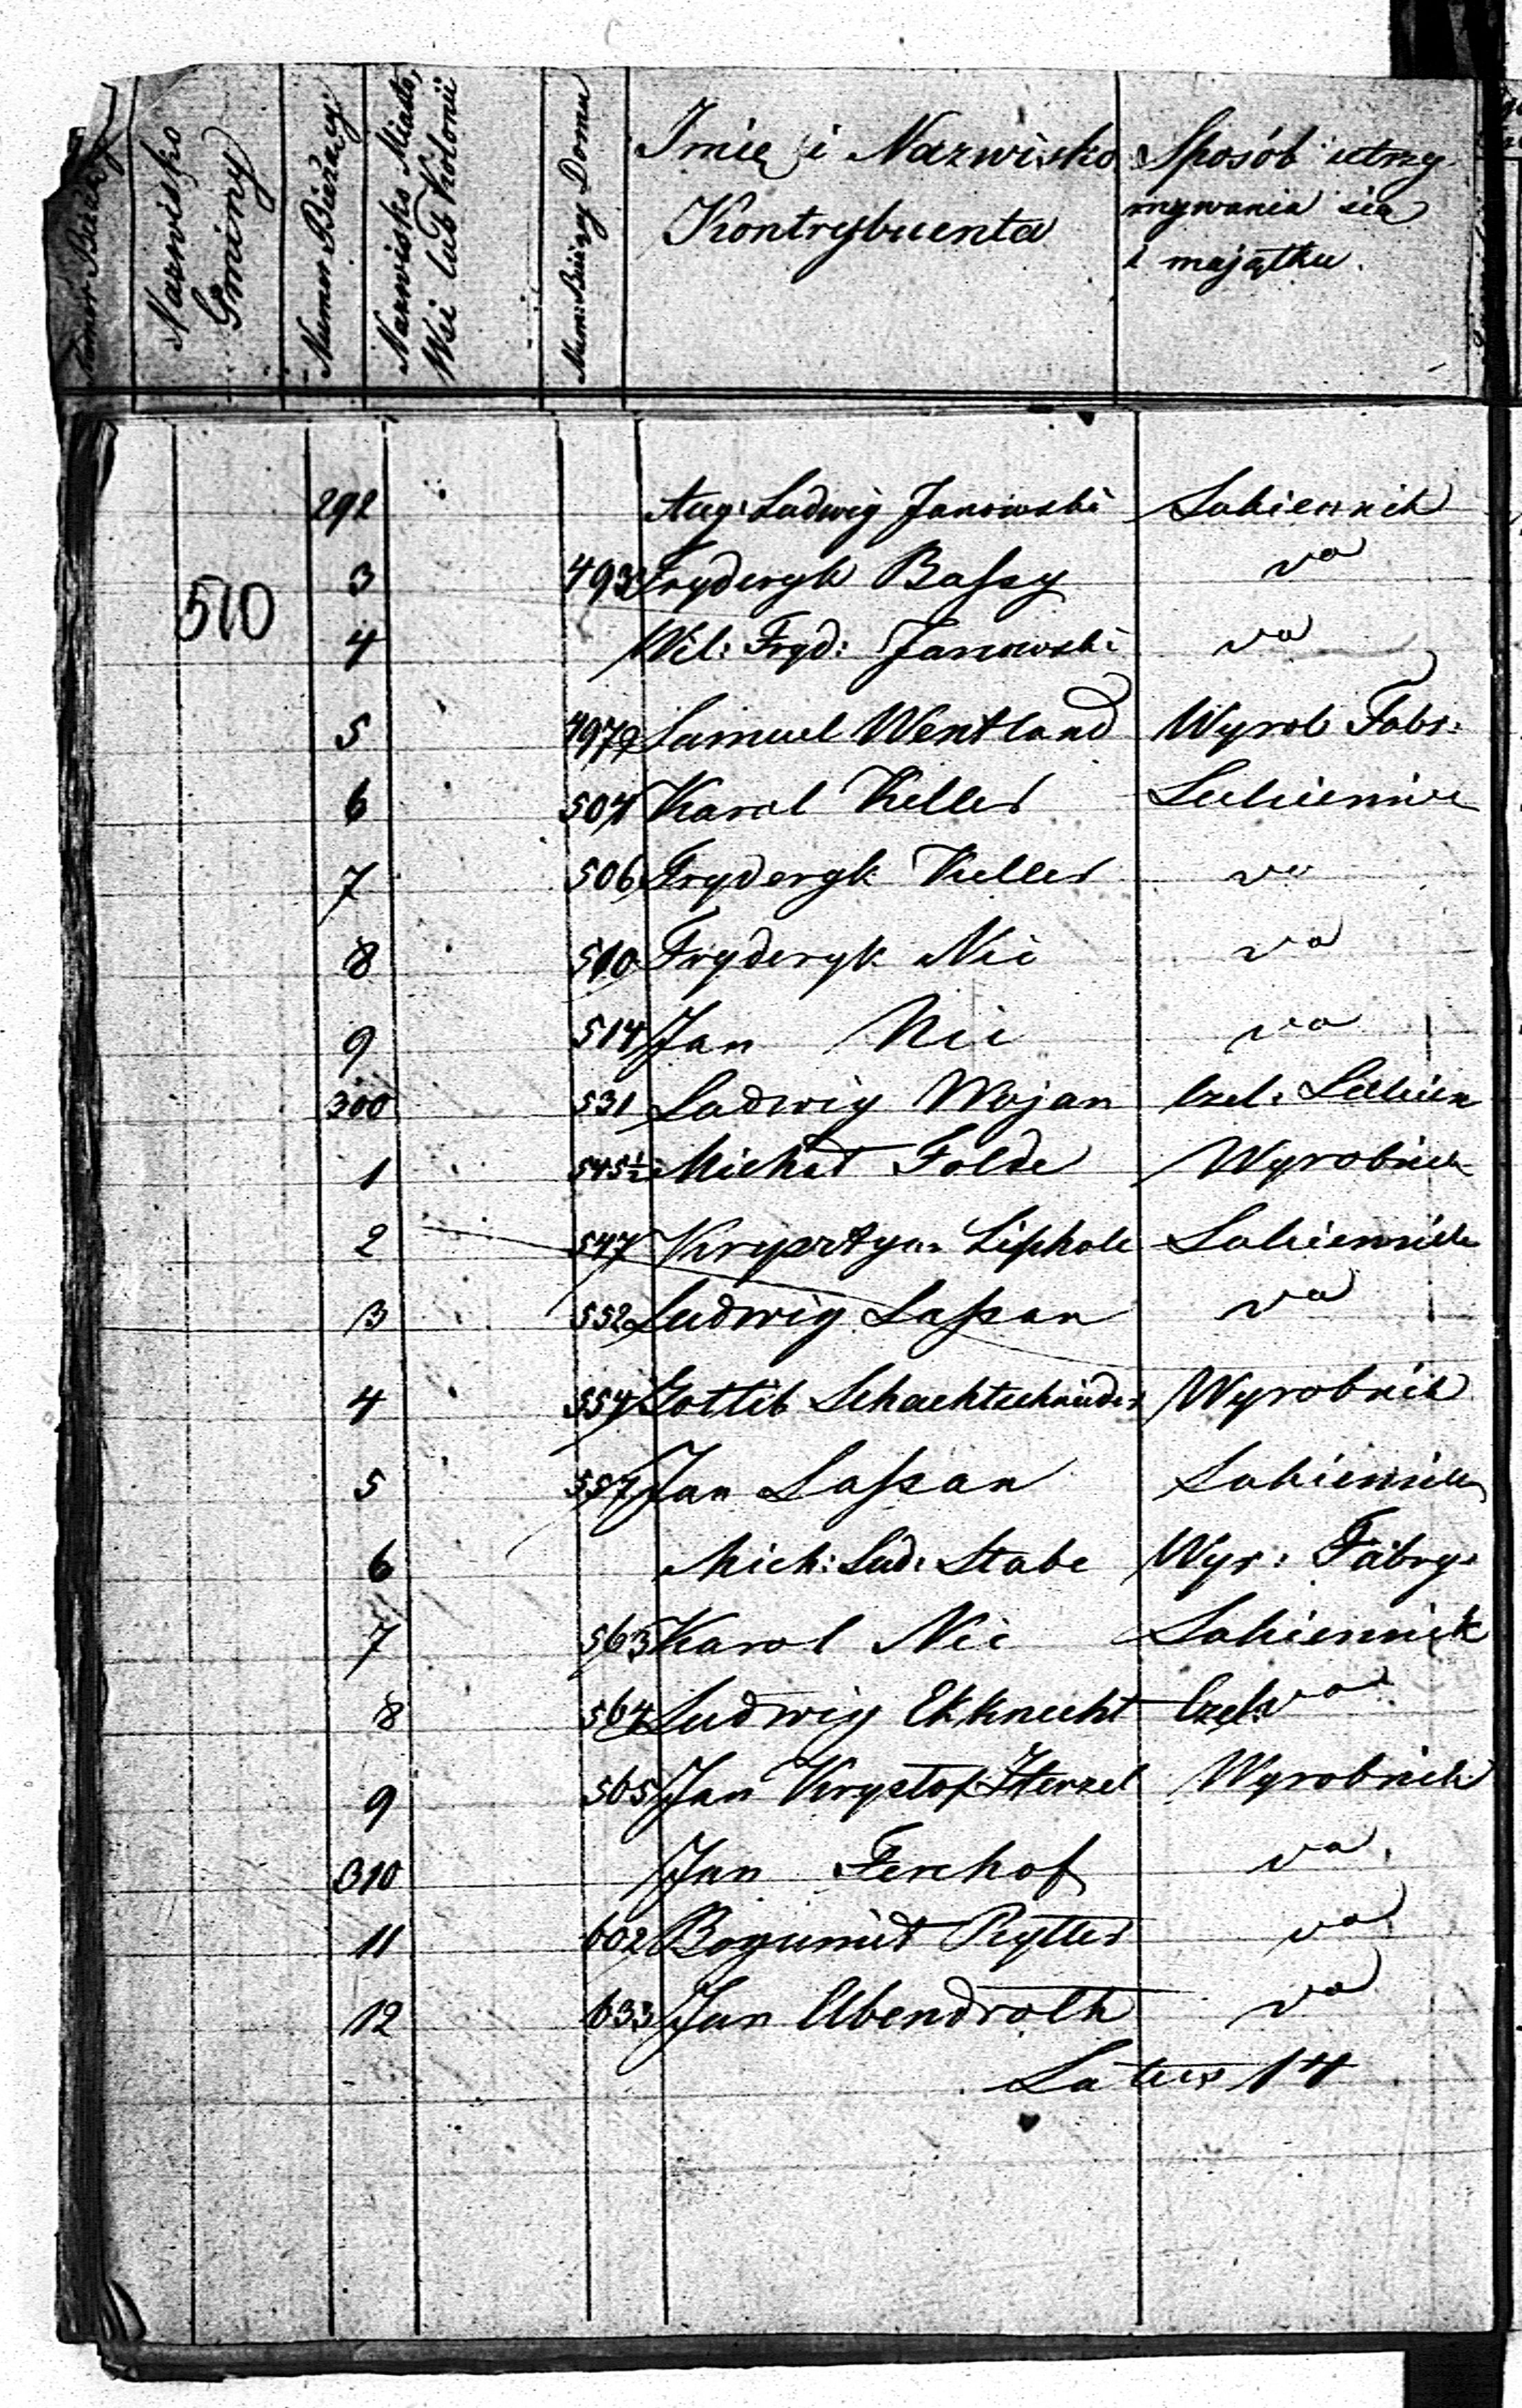 Numer Bieżący
Nazwisko Gminy
Numer Bieżący
Nazwisko Miasta, Wsi lub Kolonii
Num: Bieżący Domu
Imię i Nazwisko Kontrybuenta
Sposób utrzy mywania się i majątku.
510
292 Aug: Ludwig Janowski Sukiennik
3 493 Fryderyk Baſsy va
4 Wil: Fryd: Janowski va
5 497 Samuel Wentland Wyrob Fabr:
6 504 Karol Keller Sukiennik
7 506 Fryderyk Keller va
8 510 Fryderyk Nic va
9 514 Jan Nic va
300 531 Ludwig Wojan Czel: Sukien
1 545½ Michał Folde Wyrobnik
2 547 Krysztyan Sukiennik
3 552 Ludwig Laſsan va
4 554 Gottlib Schachtschneider Wyrobnik
5 557 Jan Laſsan Sukiennik
6 Mich: Lud: Stabe Wyr: Fabry:
7 563 Karol Nic Sukiennik
8 564 Ludwig Ekknecht Czel: va
9 565 Jan Krystof Herzel Wyrobnik
310 Jan Ferchof va
11 602 Bogumił Rytter va
12 633 Jan Abendroth va
Latus 14